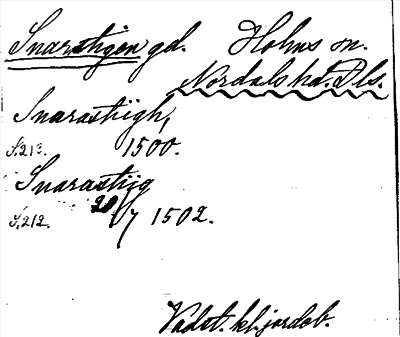 Snarstigen gd. Holms sn.
Nordals hd. Dls.
Snarastiigh,
S.213. 1500.
Snarastiig
S.212. 20/7 1502.
Vadst. kl:jordeb.